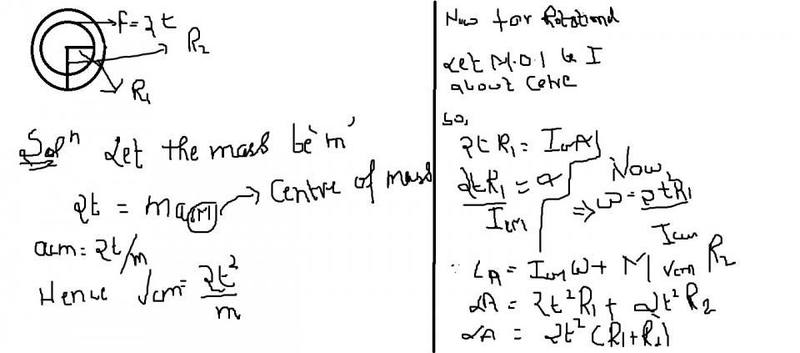 F = 2t
R2
R1
Solⁿ Let the mass be 'm'
2t = macm → Centre of mass
acm = 2t/m
Hence Vcm = 2t²/m
Now for Rotational
Let M.O.I be I
about Cetre
So,
2t R1 = Icm α
2tR1/Icm = α
Now,
⇒ ω = 2tR1/Icm
∵ LA = Icm ω + M Vcm R2
LA = 2t²R1 + 2t²R2
LA = 2t² (R1+R2)